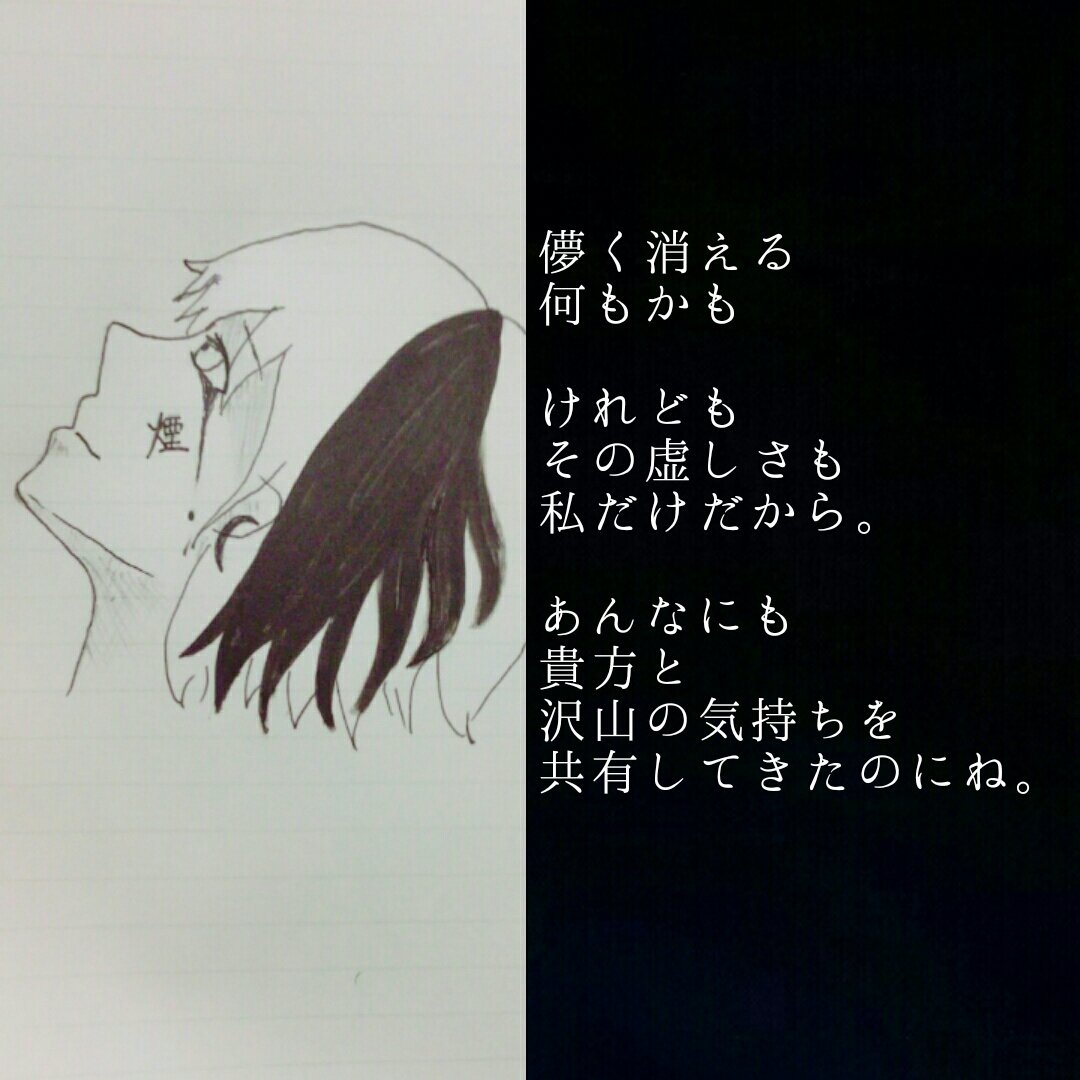 煙
儚く消える
何もかも
けれども
その虚しさも
私だけだから。
あんなにも
貴方と
沢山の気持ちを
共有してきたのにね。